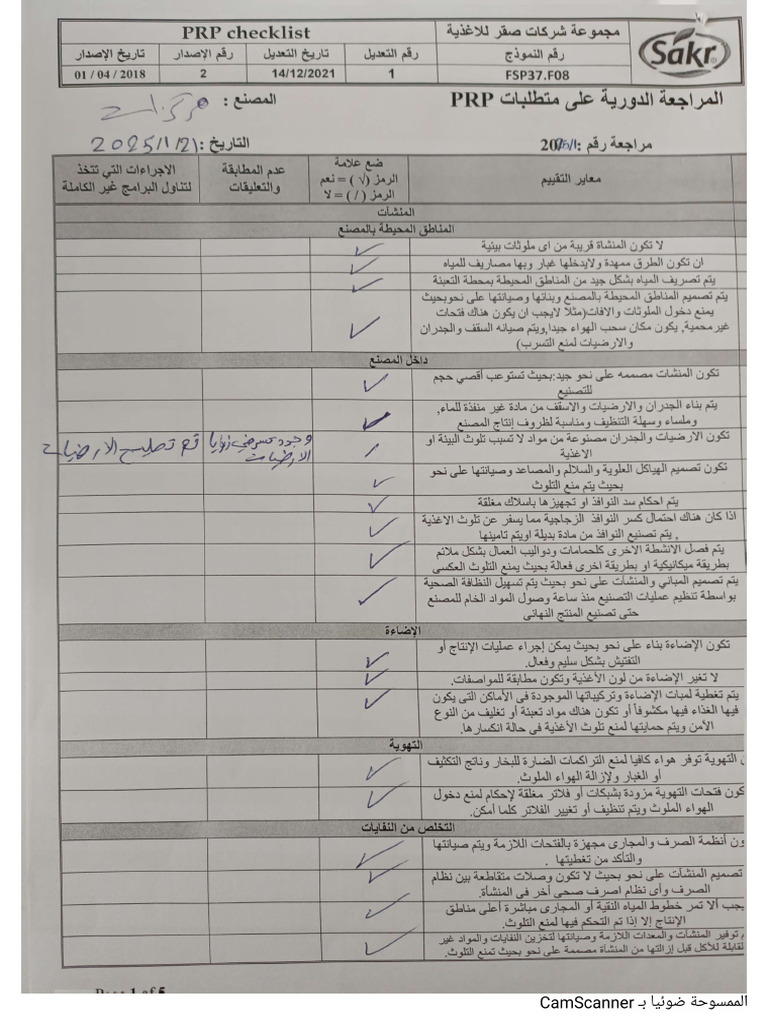 مجموعة شركات صقر للاغذية
PRP checklist
Sakr
رقم النموذج
رقم التعديل
تاريخ التعديل
رقم الإصدار
تاريخ الإصدار
FSP37.F08
1
14/12/2021
2
01 / 04 / 2018
المراجعة الدورية على متطلبات PRP
المصنع :
مراجعة رقم :
التاريخ : 2025/1/21
معاير التقييم
ضع علامة
الرمز (√ ) = نعم
الرمز ( / ) = لا
عدم المطابقة
والتعليقات
الاجراءات التي تتخذ
لتناول البرامج غير الكاملة
المنشآت
المناطق المحيطة بالمصنع
لا تكون المنشاة قريبة من اى ملوثات بيئية
ان تكون الطرق ممهدة ولايدخلها غبار وبها مصاريف للمياه
يتم تصريف المياه بشكل جيد من المناطق المحيطة بمحطة التعبئة
يتم تصميم المناطق المحيطة بالمصنع وبنائها وصيانتها على نحوبحيث
يمنع دخول الملوثات والافات(مثلا لايجب ان يكون هناك فتحات
غيرمحمية, يكون مكان سحب الهواء جيدا,ويتم صيانه السقف والجدران
والارضيات لمنع التسرب)
داخل المصنع
تكون المنشات مصممه على نحو جيد:بحيث تستوعب أقصي حجم
للتصنيع
يتم بناء الجدران والارضيات والاسقف من مادة غير منفذة للماء,
وملساء وسهلة التنظيف ومناسبة لظروف إنتاج المصنع
تكون الارضيات والجدران مصنوعة من مواد لا تسبب تلوث البيئة او
الاغذية
وجود
زوايا
الارضيات
تم تصليح الارضيات
تكون تصميم الهياكل العلوية والسلالم والمصاعد وصيانتها على نحو
بحيث يتم منع التلوث
يتم احكام سد النوافذ او تجهيزها باسلاك مغلقة
اذا كان هناك احتمال كسر النوافذ الزجاجية مما يسفر عن تلوث الاغذية
, يتم تصنيع النوافذ من مادة بديلة اويتم تامينها
يتم فصل الانشطة الاخرى كلحمامات ودواليب العمال بشكل ملائم
بطريقة ميكانيكية او بطريقة اخرى فعالة بحيث يمنع التلوث العكسى
يتم تصميم المباني والمنشآت على نحو بحيث يتم تسهيل النظافة الصحية
بواسطة تنظيم عمليات التصنيع منذ ساعة وصول المواد الخام للمصنع
حتى تصنيع المنتج النهائى
الإضاءة
تكون الإضاءة بناء على نحو بحيث يمكن إجراء عمليات الإنتاج أو
التفتيش بشكل سليم وفعال.
لا تغير الإضاءة من لون الأغذية وتكون مطابقة للمواصفات.
يتم تغطية لمبات الإضاءة وتركيباتها الموجودة فى الأماكن التى يكون
فيها الغذاء فيها مكشوفأ أو تكون هناك مواد تعبئة أو تغليف من النوع
الأمن ويتم حمايتها لمنع تلوث الأغذية فى حالة انكسارها.
التهوية
التهوية توفر هواء كافيا لمنع التراكمات الضارة للبخار وناتج التكثيف
أو الغبار ولإزالة الهواء الملوث.
كون فتحات التهوية مزودة بشبكات أو فلاتر مغلقة لإحكام لمنع دخول
الهواء الملوث ويتم تنظيف أو تغيير الفلاتر كلما أمكن.
التخلص من النفايات
ون أنظمة الصرف والمجارى مجهزة بالفتحات اللازمة ويتم صيانتها
والتأكد من تغطيتها .
تصميم المنشآت على نحو بحيث لا تكون وصلات متقاطعة بين نظام
الصرف وأى نظام اصرف صحى أخر فى المنشأة.
يجب ألا تمر خطوط المياه النقية أو المجارى مباشرة أعلى مناطق
الإنتاج إلا إذا تم التحكم فيها لمنع التلوث.
م توفير المنشآت والمعدات اللازمة وصيانتها لتخزين النفايات والمواد غير
لقابلة للأكل قبل إزالتها من المنشأة مصممة على نحو بحيث تمنع التلوث.
Page 1 of 5
الممسوحة ضوئيا بـ CamScanner